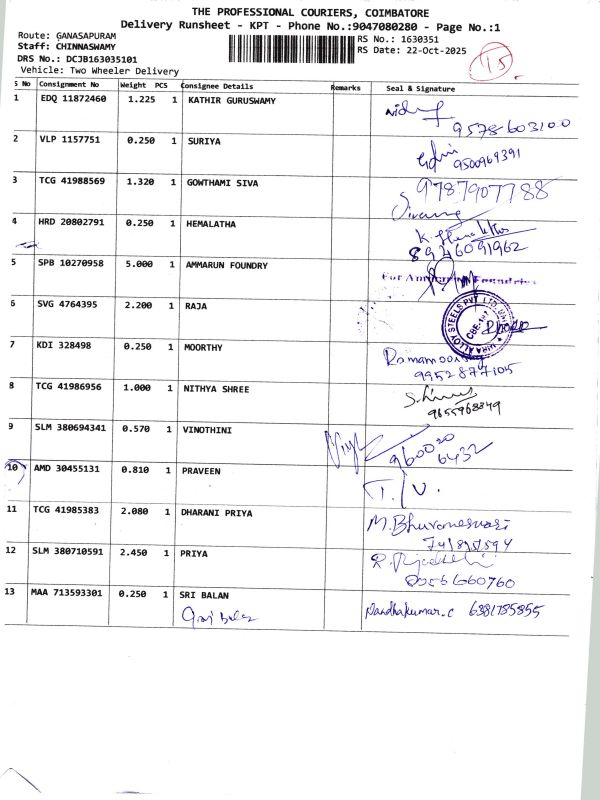 THE PROFESSIONAL COURIERS, COIMBATORE
Delivery Runsheet - KPT - Phone No.:9047080280 - Page No.:1
Route: GANASAPURAM
RS No.: 1630351
Staff: CHINNASWAMY
RS Date: 22-Oct-2025
15
DRS No.: DCJB163035101
Vehicle: Two Wheeler Delivery
S No Consignment No Weight PCS Consignee Details Remarks Seal & Signature
1 EDQ 11872460 1.225 1 KATHIR GURUSWAMY
9578603100
2 VLP 1157751 0.250 1 SURIYA
9500969391
3 TCG 41988569 1.320 1 GOWTHAMI SIVA 9787907788
4 HRD 20802791 0.250 1 HEMALATHA
8946091962
5 SPB 10270958 5.000 1 AMMARUN FOUNDRY
For
6 SVG 4764395 2.200 1 RAJA
7 KDI 328498 0.250 1 MOORTHY
9952877105
8 TCG 41986956 1.000 1 NITHYA SHREE
9655968849
9 SLM 380694341 0.570 1 VINOTHINI
960020
6432
10 AMD 30455131 0.810 1 PRAVEEN
11 TCG 41985383 2.080 1 DHARANI PRIYA M.Bhuvaneswari
12 SLM 380710591 2.450 1 PRIYA
13 MAA 713593301 0.250 1 SRI BALAN Nandhakumar.c 6381785855